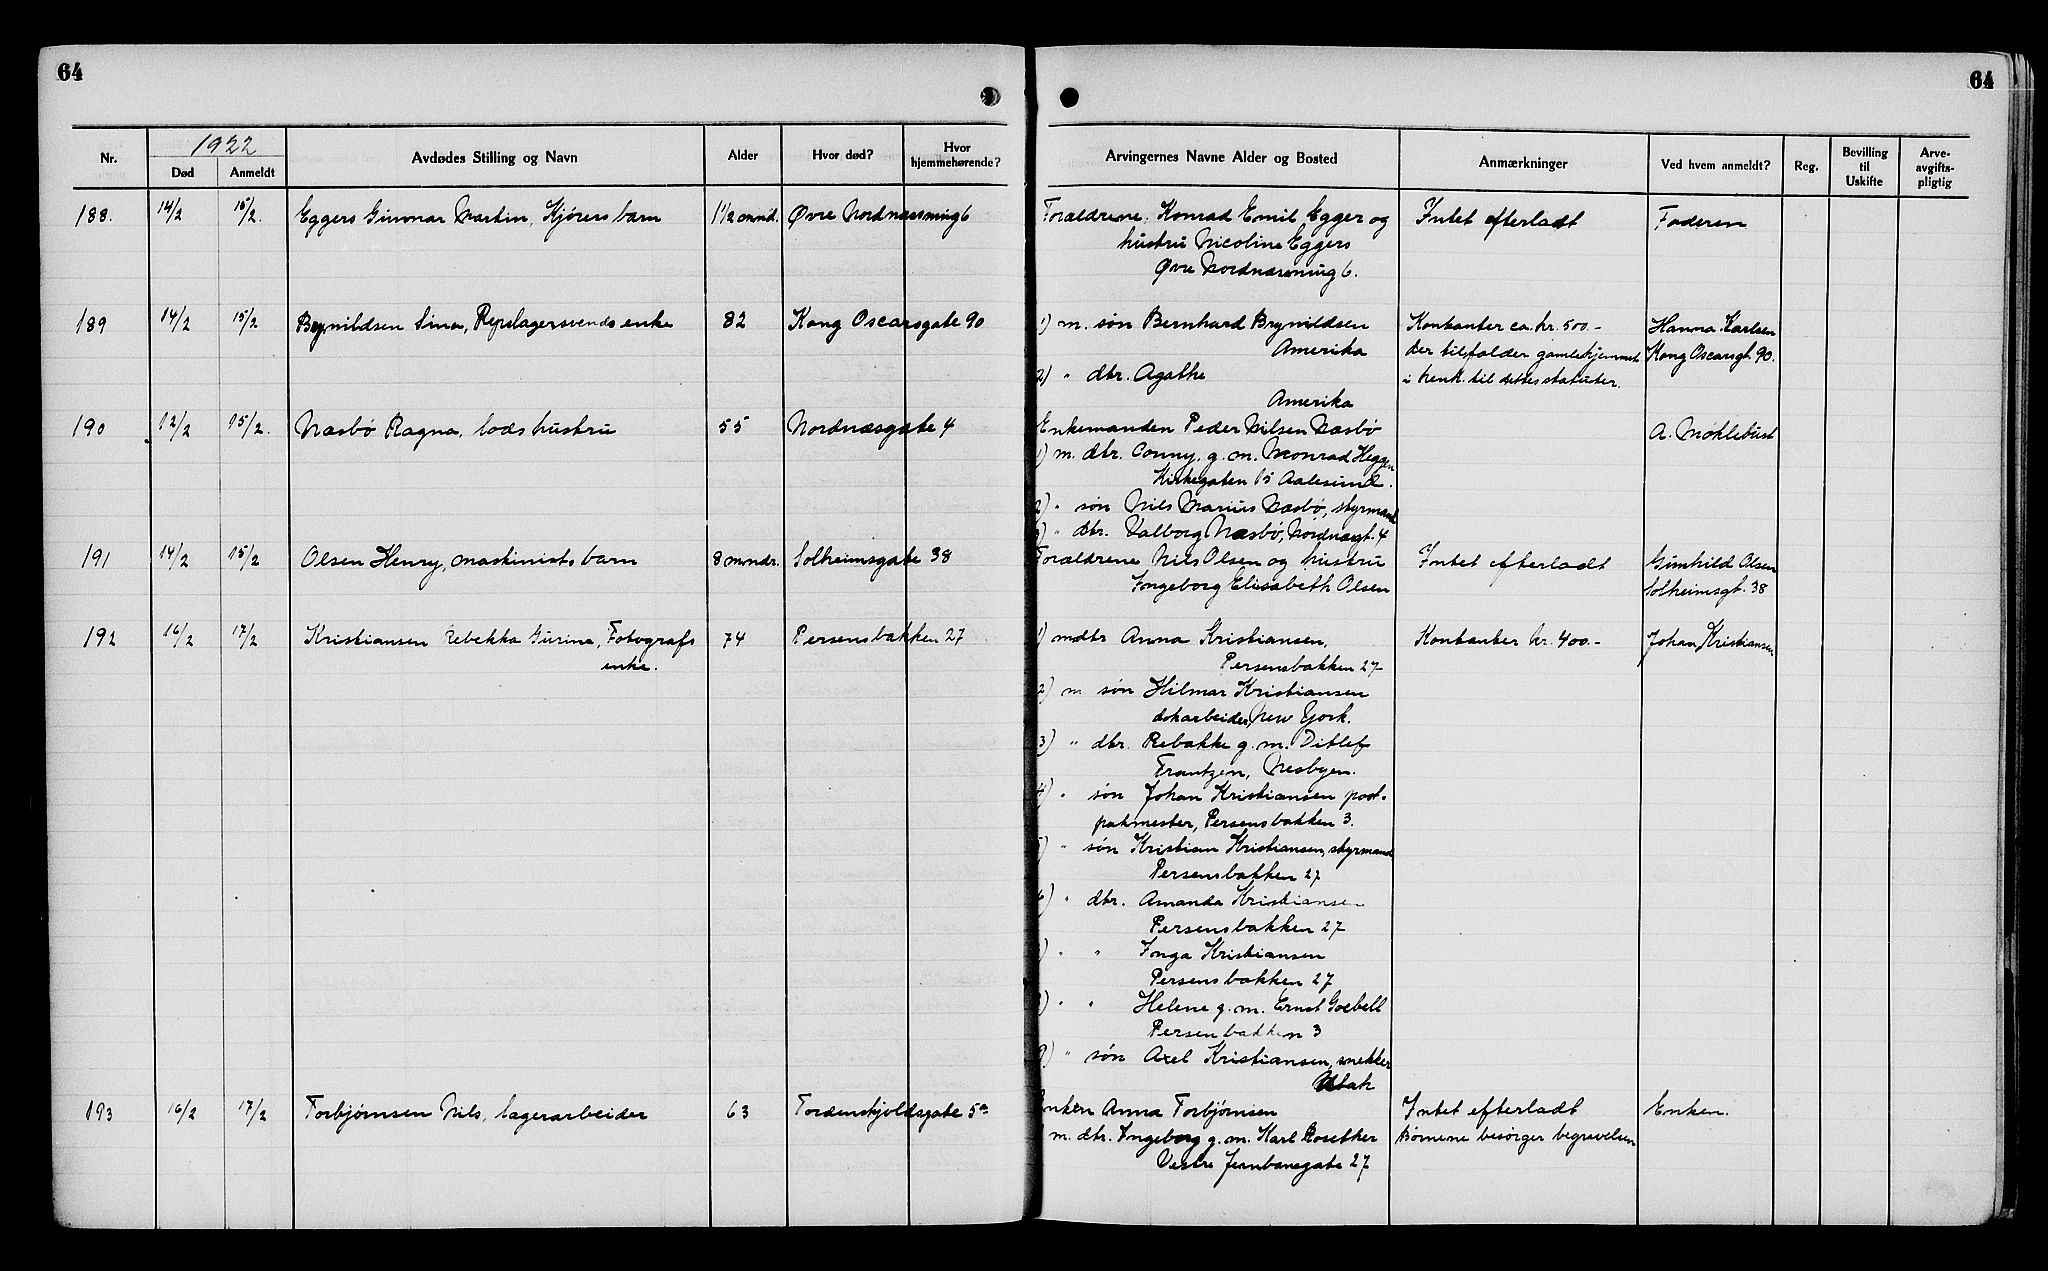 64
64
Nr.
1922
Død
Anmeldt
Avdødes Stilling og Navn
Alder
Hvor død?
Hvor hjemmehørende?
Arvingernes Navne Alder og Bosted
Anmærkninger
Ved hvem anmeldt?
Reg.
Bevilling til Uskifte
Arve-avgifts-pligtig
188. 14/2 15/2. Eggers Gunnar Martin, Kjøres barn 1½ mnd. Øvre Nordnæsmug 6
Forældrene: Konrad Emil Egger og Intet efterladt Faderen
hustru Nicoline Eggers
Øvre Nordnæsmug 6.
189 14/2 15/2 Brynildsen Sina, Repslagersvends enke 82 Kong Oscarsgate 90
1) m. søn Bernhard Brynildsen Kontanter ca. kr. 500.- Hanna Karlsen
Amerika der tilfalder gamlehjemmet Kong Oscarsgt. 90.
2) " dtr. Agathe i henh. til dettes statuter.
Amerika
190 12/2 15/2. Næsbø Ragna, lods hustru 55 Nordnæsgate 4
Enkemanden Peder Nilsen Næsbø A. Møklebust
1) m. dtr. Conny, g. m. Monrad Heggen
Kirkegaten 15 Aalesund.
2) " søn Nils Marius Næsbø, styrmand
3) " dtr. Valborg Næsbø, Nordnæsgt. 4
191 14/2 15/2 Olsen Henry, maskinists barn 8 mndr. Solheimsgate 38
Forældrene Nils Olsen og hustru Intet efterladt Gunhild Olsen
Ingeborg Elisabeth Olsen Solheimsgt. 38
192 16/2 17/2 Kristiansen Rebekka Gurine, Fotografs 74 Persensbakken 27
enke.
1) m dtr Anna Kristiansen, Kontanter kr. 400.- Johan Kristiansen
Persensbakken 27
2) m søn Hilmar Kristiansen
dokarbeider, New York.
3) " dtr. Rebakke g. m. Ditlef
Frantzen, Nesbyen.
4) " søn Johan Kristiansen post-
pakmester, Persensbakken 3.
5) " søn Kristian Kristiansen, styrmand
Persensbakken 27
6) " dtr. Amanda Kristiansen
Persensbakken 27
) " " Inga Kristiansen
Persensbakken 27
8) " " Helene g. m. Ernst Goebell
Persenbakken 3
9) " søn Axel Kristiansen, snekker
Utah
193 16/2 17/2 Torbjørnsen Nils, lagerarbeider 63 Tordenskjoldsgate 5a
Enken Anna Torbjørnsen Intet efterladt Enken.
m. dtr. Ingeborg g. m. Karl Rosether Børnene besørger begravelsen
Vestre Jernbanegate 27